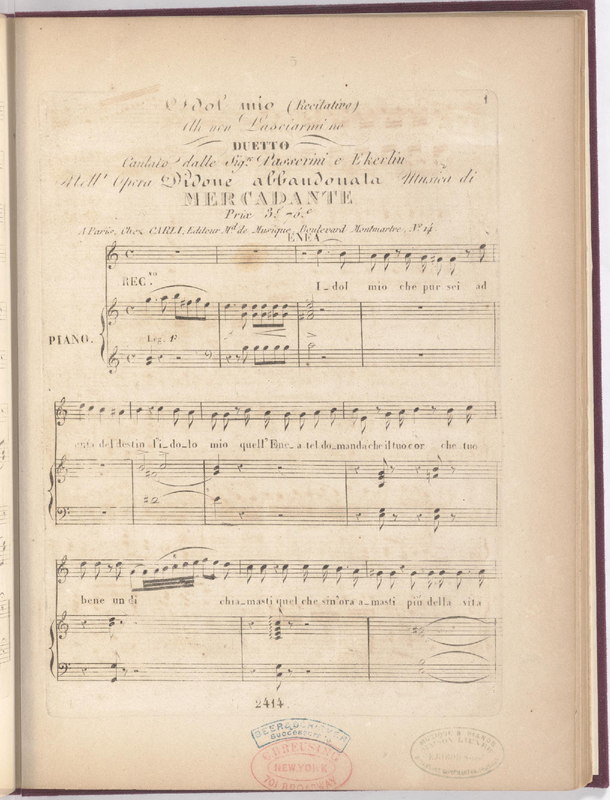 1
Idol mio (Recitativo)
Ah non Lasciarmi no
DUETTO
Cantato dalle Sig.re Passerini e Ekerlin
Nell' Opera Didone abbandonata Musica di
MERCADANTE
Prix 3.f 75.c
A Paris, Chez CARLI, Editeur M.d de Musique, Boulevard Montmartre, N.o 14
ENEA
REC.vo
I_dol mio che pur sei ad
PIANO.
Leg. F
onta del destin l'i_do_lo mio quell' Ene_a tel do_manda che il tuo cor che tuo
bene un di chia_masti quel che sin'ora a_masti più della vita
2414
SUCCESSORS TO
G. BREUSING
NEW-YORK
701 BROADWAY
MUSIQUE & PIANOS